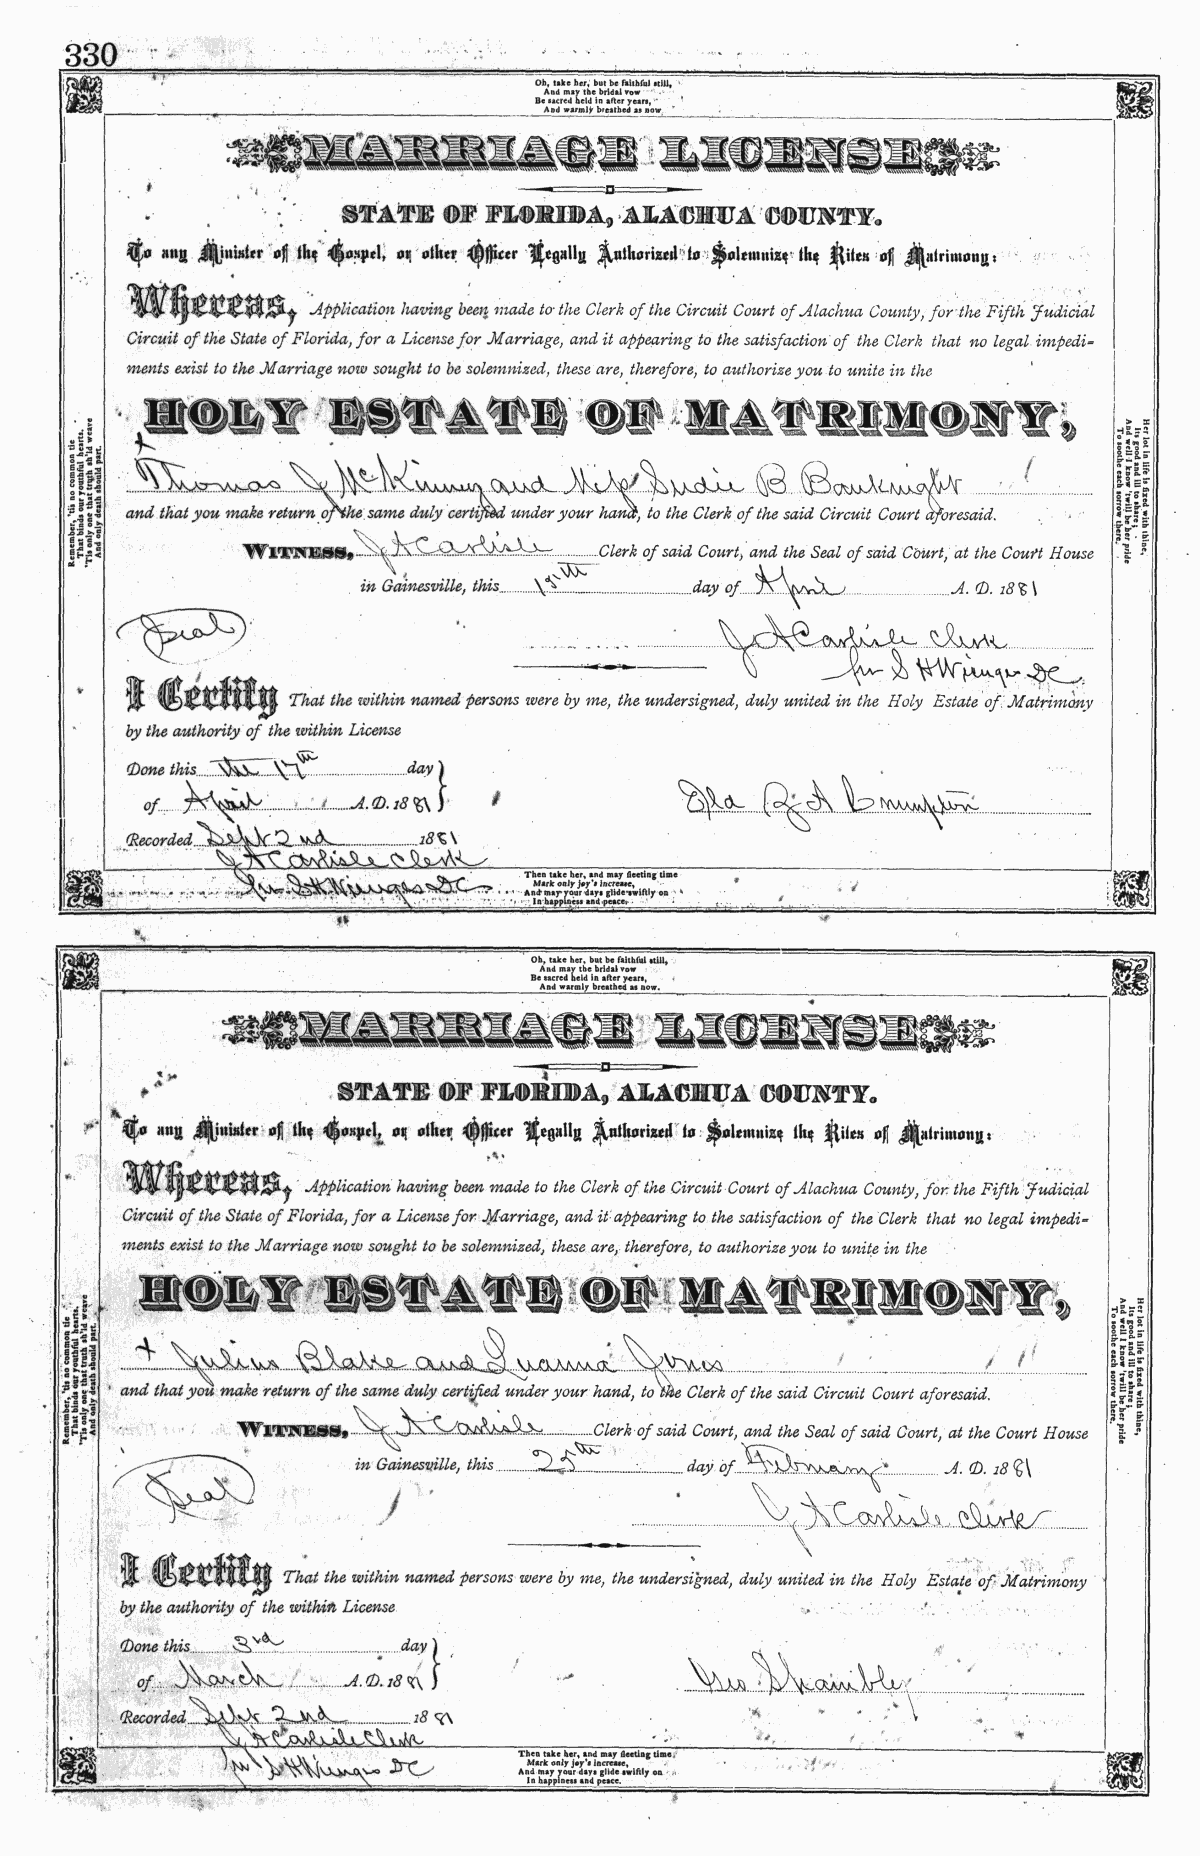 330
Oh, take her, but be faithful still,
And may the bridal vow
Be sacred held in after years,
And warmly breathed as now
MARRIAGE LICENSE
STATE OF FLORIDA, ALACHUA COUNTY.
To any Minister of the Gospel, or other Officer Legally Authorized to Solemnize the Rites of Matrimony:
Whereas, Application having been made to the Clerk of the Circuit Court of Alachua County, for the Fifth Judicial
Circuit of the State of Florida, for a License for Marriage, and it appearing to the satisfaction of the Clerk that no legal impedi=
ments exist to the Marriage now sought to be solemnized, these are, therefore, to authorize you to unite in the
HOLY ESTATE OF MATRIMONY,
+
Thomas J McKinney and Miss Sudie B Bauknight
and that you make return of the same duly certified under your hand, to the Clerk of the said Circuit Court aforesaid.
WITNESS, J A Carlisle Clerk of said Court, and the Seal of said Court, at the Court House
in Gainesville, this 15th day of April A. D. 1881
Seal
J A Carlisle Clerk
per S H Wienges DC
I Certify That the within named persons were by me, the undersigned, duly united in the Holy Estate of Matrimony
by the authority of the within License
Done this the 17th day
of April A. D. 1881
Eld A Crumpton
Recorded Sept 2nd 1881
J A Carlisle Clerk
per S H Wienges DC
Remember, 'tis no common tie
That binds our youthful hearts,
'Tis only one that truth sh'ld weave
And only death should part.
Her lot in life is fixed with thine,
Its good and ill to share;
And well I know 'twill be her pride
To soothe each sorrow there.
Then take her, and may fleeting time
Mark only joy's increase,
And may your days glide swiftly on
In happiness and peace.
Oh, take her, but be faithful still,
And may the bridal vow
Be sacred held in after years,
And warmly breathed as now.
MARRIAGE LICENSE
STATE OF FLORIDA, ALACHUA COUNTY.
To any Minister of the Gospel, or other Officer Legally Authorized to Solemnize the Rites of Matrimony:
Whereas, Application having been made to the Clerk of the Circuit Court of Alachua County, for the Fifth Judicial
Circuit of the State of Florida, for a License for Marriage, and it appearing to the satisfaction of the Clerk that no legal impedi=
ments exist to the Marriage now sought to be solemnized, these are, therefore, to authorize you to unite in the
HOLY ESTATE OF MATRIMONY,
+ Julius Blake and Luanna Jones
and that you make return of the same duly certified under your hand, to the Clerk of the said Circuit Court aforesaid.
WITNESS, J A Carlisle Clerk of said Court, and the Seal of said Court, at the Court House
in Gainesville, this 25th day of February A. D. 1881
Seal
J A Carlisle Clerk
I Certify That the within named persons were by me, the undersigned, duly united in the Holy Estate of Matrimony
by the authority of the within License
Done this 3rd day
of March A. D. 1881
Geo Shambley
Recorded Sept 2nd 1881
J A Carlisle Clerk
per S H Wienges DC
Remember, 'tis no common tie
That binds our youthful hearts,
'Tis only one that truth sh'ld weave
And only death should part.
Her lot in life is fixed with thine,
Its good and ill to share;
And well I know 'twill be her pride
To soothe each sorrow there.
Then take her, and may fleeting time,
Mark only joy's increase,
And may your days glide swiftly on
In happiness and peace.